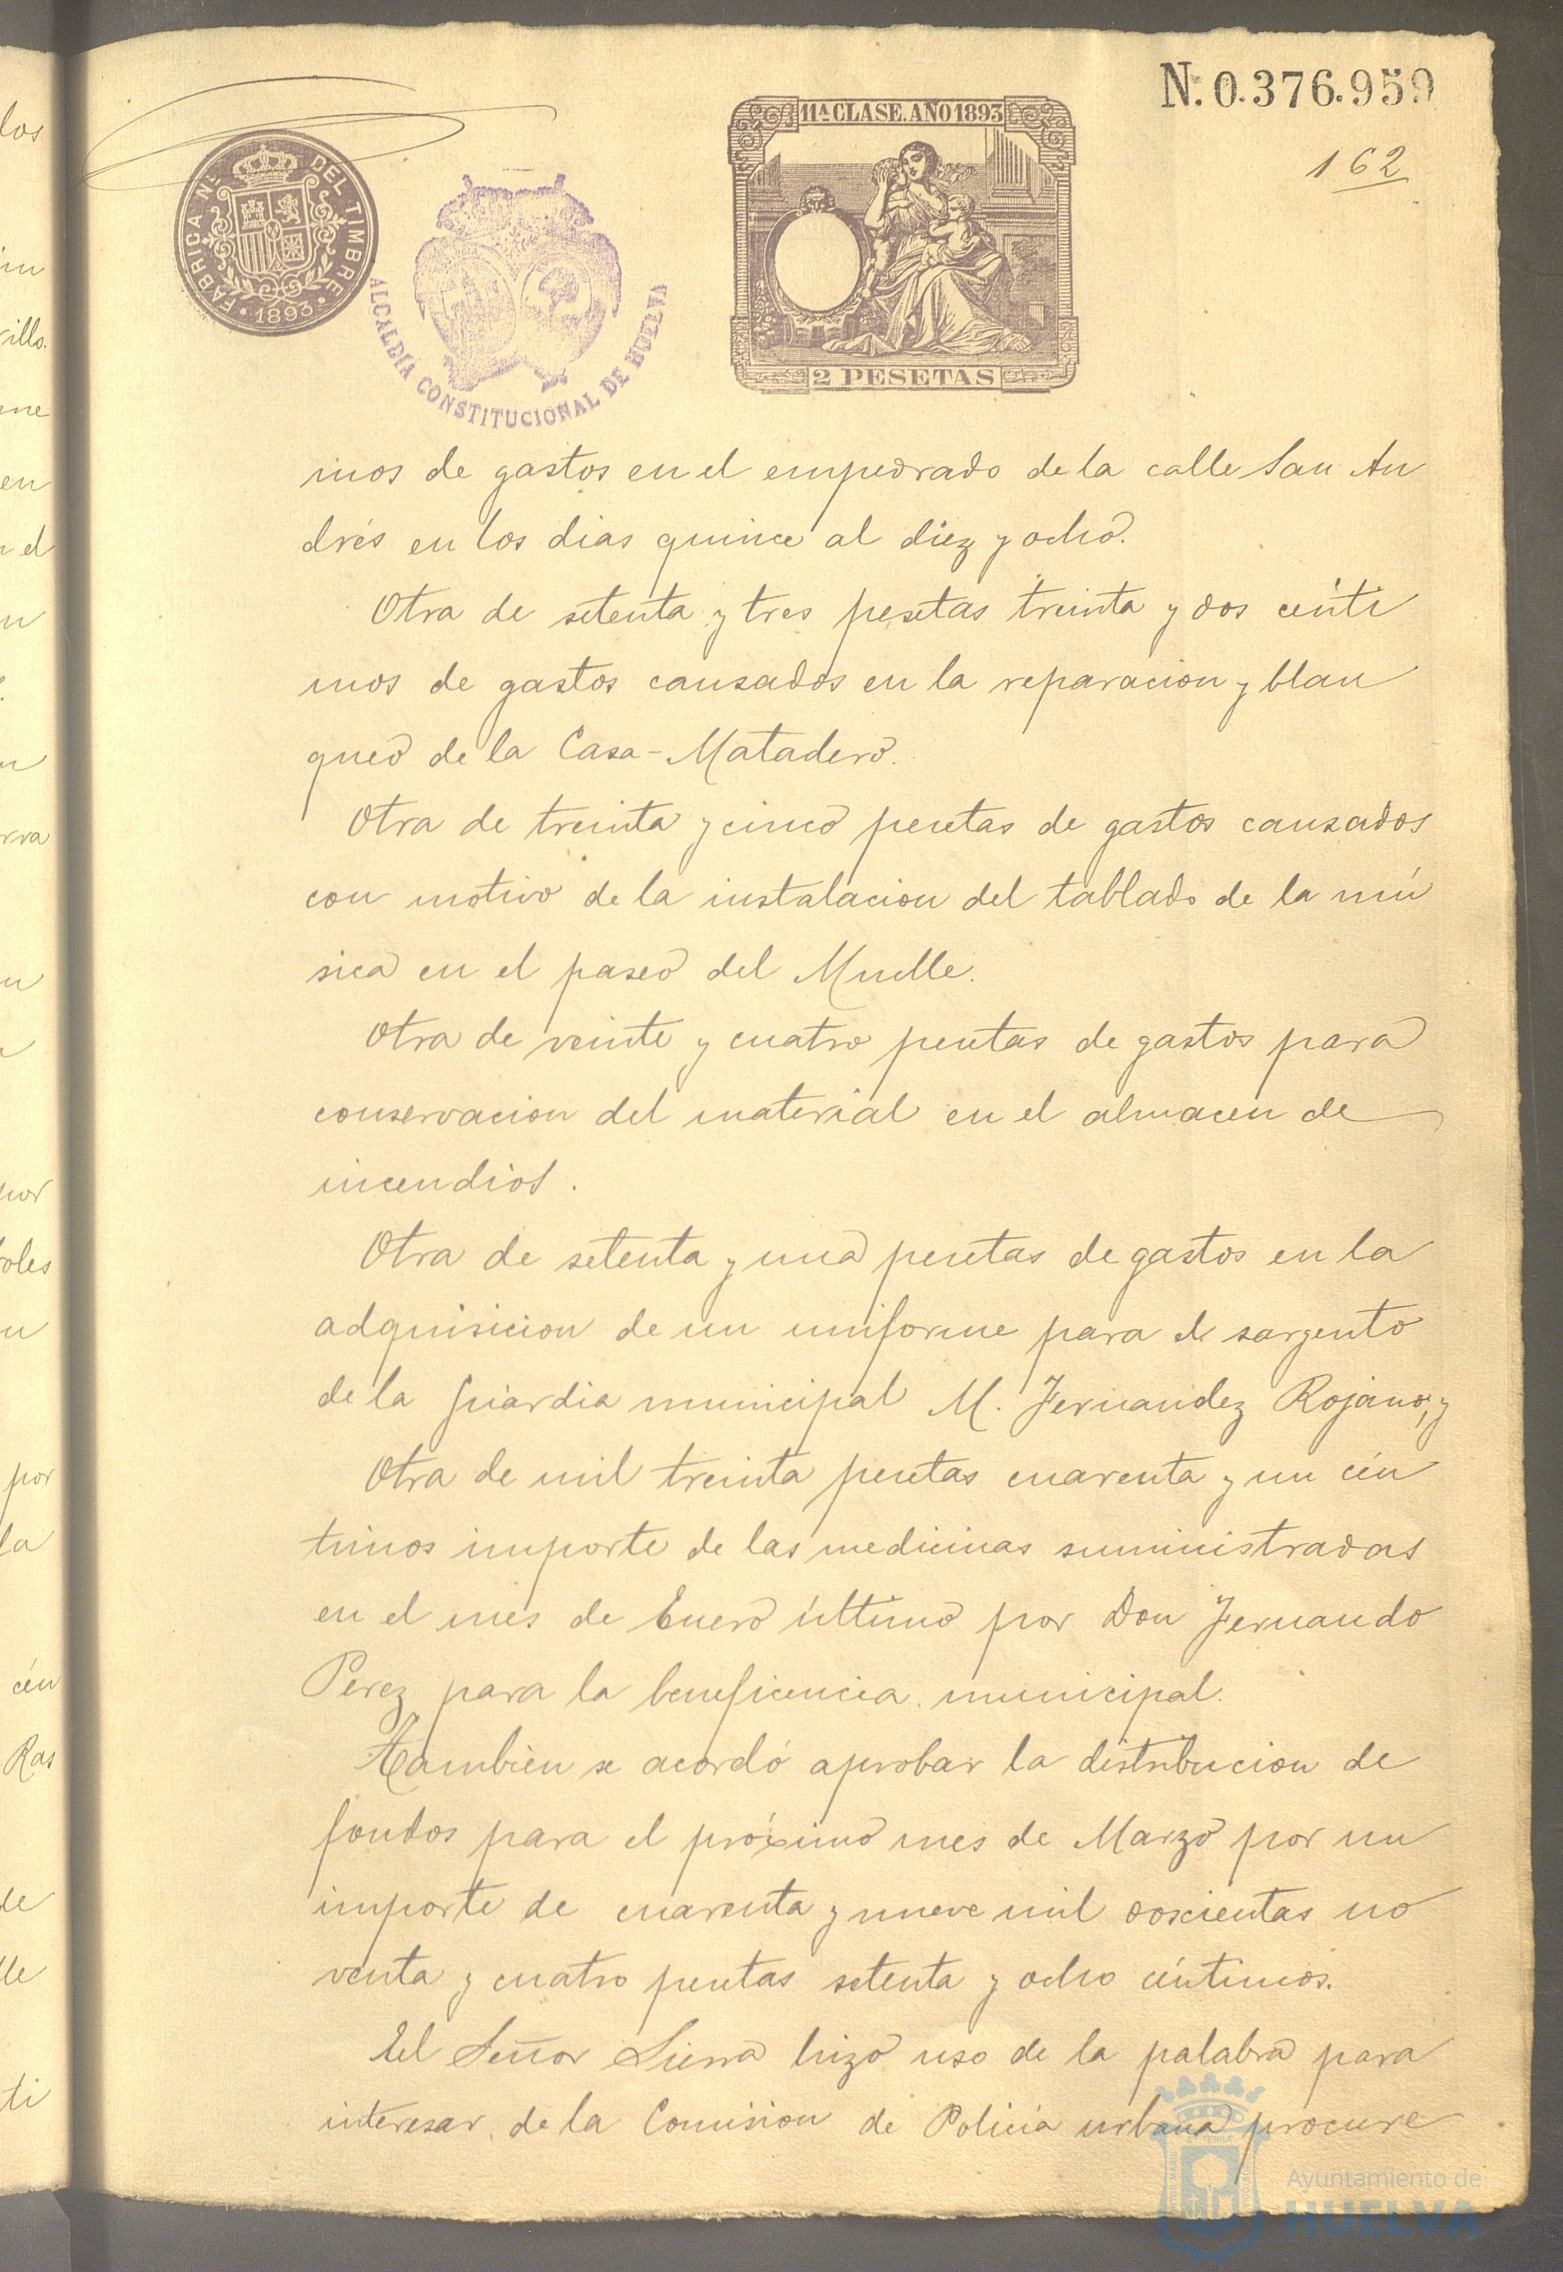 N.º 0.376.959
11ª CLASE. AÑO 1893
162
FABRICA N.ᴸ DEL TIMBRE
1893
ALCALDIA CONSTITUCIONAL DE HUELVA
2 PESETAS
mos de gastos en el empedrado de la calle San An
drés en los dias quince al diez y ocho.
Otra de setenta y tres pesetas treinta y dos cénti
mos de gastos causados en la reparacion y blan
queo de la Casa-Matadero.
Otra de treinta y cinco pesetas de gastos causados
con motivo de la instalacion del tablado de la mú
sica en el paseo del Muelle.
Otra de veinte y cuatro pesetas de gastos para
conservacion del material en el almacen de
incendios.
Otra de setenta y una pesetas de gastos en la
adquisicion de un uniforme para el sargento
de la Guardia municipal M. Fernandez Rojano, y
Otra de mil treinta pesetas cuarenta y un cén
timos importe de las medicinas suministradas
en el mes de Enero último por Don Fernando
Perez para la beneficencia municipal.
Tambien se acordó aprobar la distribucion de
fondos para el próximo mes de Marzo por un
importe de cuarenta y nueve mil doscientas no
venta y cuatro pesetas setenta y ocho céntimos.
El Señor Sierra hizo uso de la palabra para
interesar de la Comision de Policía urbana procure
Ayuntamiento de
HUELVA
los
en
el
rra
por
oles
por
la
cén
Ras
de
lle
ti